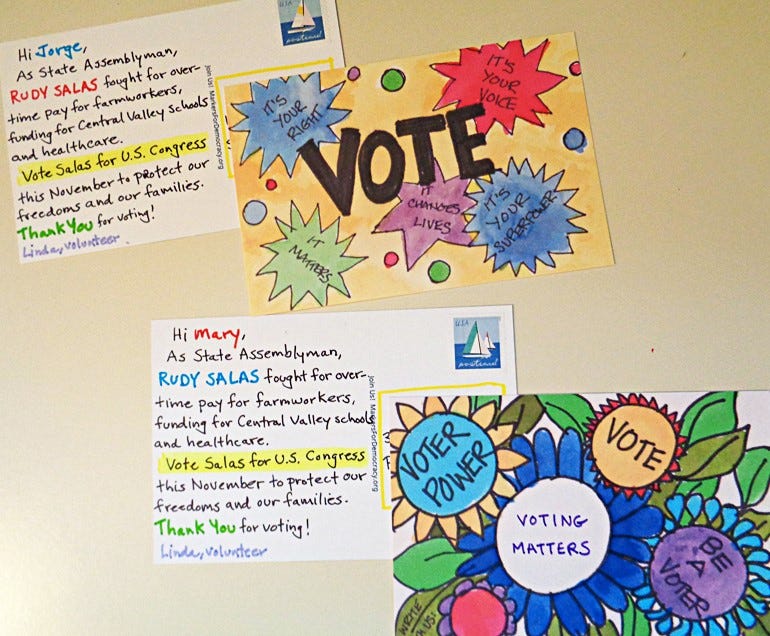 Hi Jorge,
As State Assemblyman,
RUDY SALAS fought for over-
time pay for farmworkers,
funding for Central Valley Schools
and healthcare.
Vote Salas for U.S. Congress
this November to protect our
freedoms and our families.
Thank You for voting!
Linda, volunteer
USA
postcard
Join Us! MarkersForDemocracy.org
IT'S
YOUR
RIGHT
IT'S
YOUR
VOICE
VOTE
IT
CHANGES
LIVES
IT'S
YOUR
SUPERPOWER
IT
MATTERS
Hi Mary,
As State Assemblyman,
RUDY SALAS fought for over-
time pay for farmworkers,
funding for Central Valley schools
and healthcare.
Vote Salas for U.S. Congress
this November to protect our
freedoms and our families.
Thank You for voting!
Linda, volunteer
USA
postcard
Join Us! MarkersForDemocracy.org
VOTER
POWER
VOTE
VOTING
MATTERS
BE
A
VOTER
WRITE